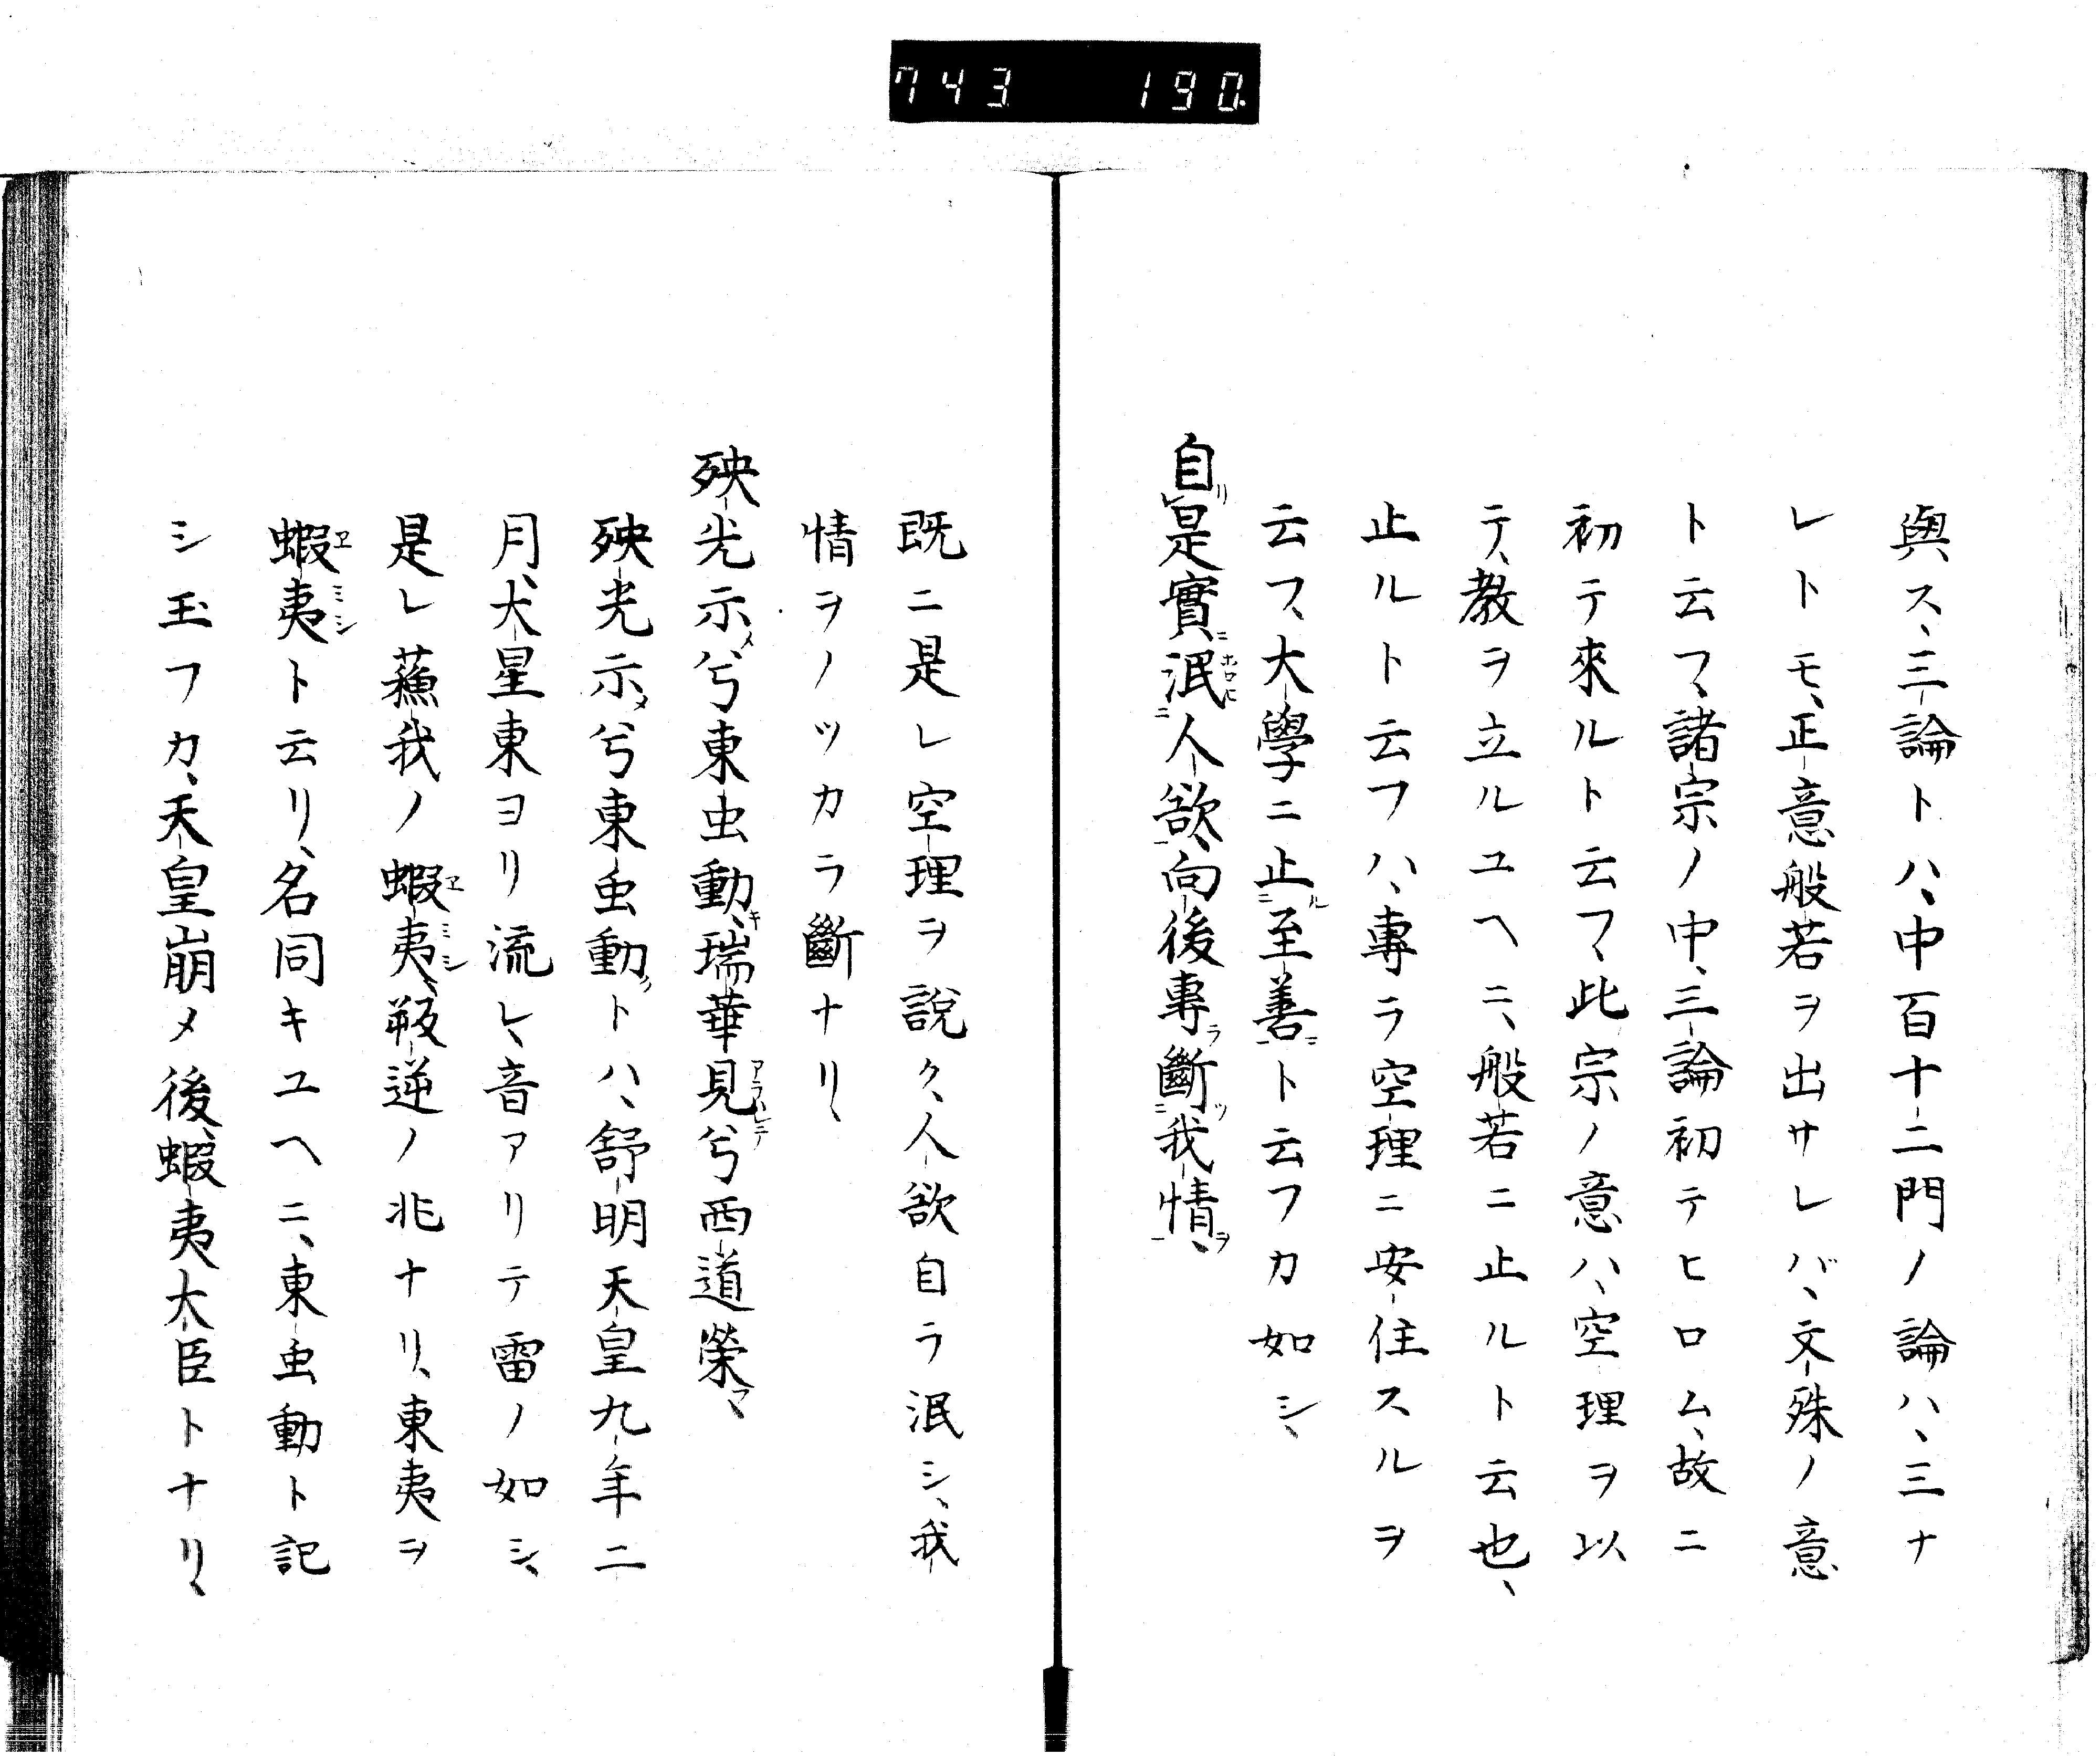 743 190
與ス、三論トハ、中百十二門ノ論ハ、三ナ
レトモ、正意般若ヲ出サレバ、文殊ノ意
ト云フ、諸宗ノ中、三論初テヒロム、故ニ
初テ來ルト云フ、此宗ノ意ハ、空理ヲ以
テ、教ヲ立ルユヘニ、般若ニ止ルト云也、
止ルト云フハ、專ラ空理ニ安住スルヲ
云フ、大學ニ止ルニ至善ニ一ト云フカ如シ、
自リレ是實ニ泯ホロヒニ人欲一、向後專ラ斷ツニ我情ヲ一、
既ニ是レ空理ヲ說ク、人欲自ラ泯シ、我
情ヲノツカラ斷ナリ、
殃光示メ、兮東虫動キ、瑞華見アラハレテ兮西道榮フ、
殃光示メ兮東虫動クトハ、舒明天皇九年二
月、大星東ヨリ流レ、音アリテ雷ノ如シ、
是レ蘓我ノ蝦夷エミシ、叛逆ノ兆ナリ、東夷ヲ
蝦夷エミシト云リ、名同キユヘニ、東虫動ト記
シ玉フカ、天皇崩メ後、蝦夷大臣トナリ、